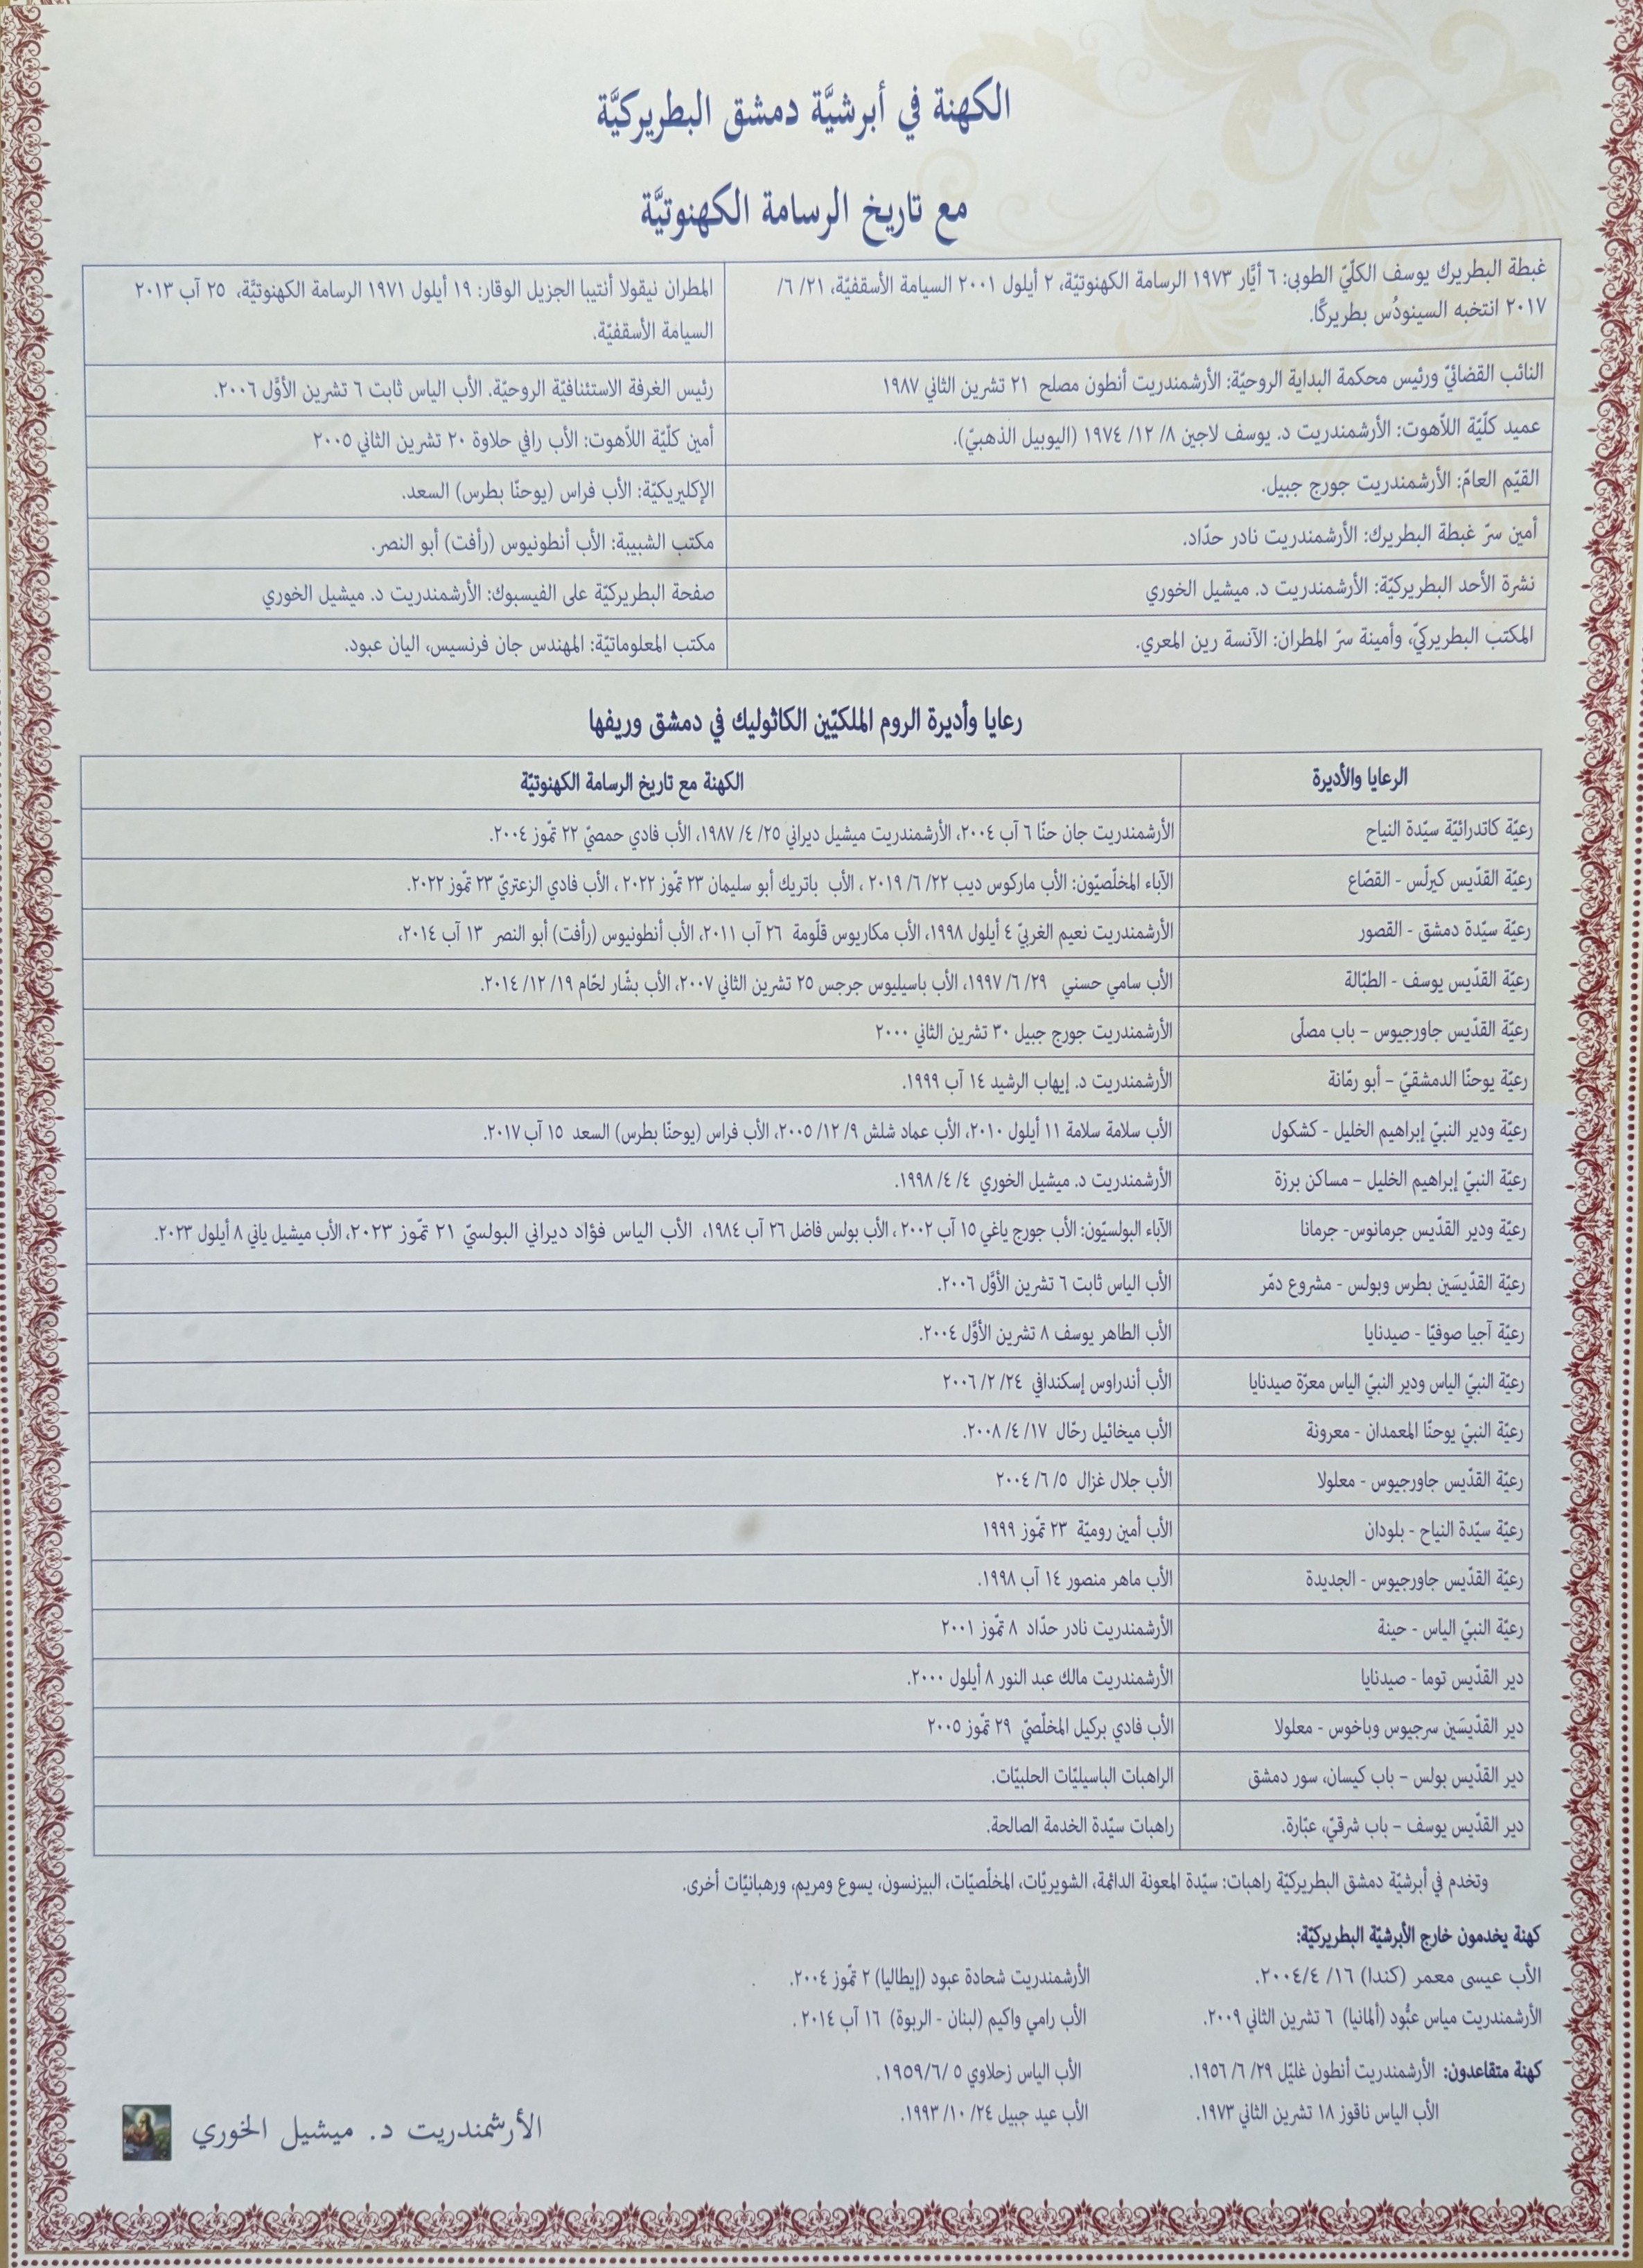 الكهنة في أبرشيَّة دمشق البطريركيَّة
مع تاريخ الرسامة الكهنوتيَّة
غبطة البطريرك يوسف الكلّيّ الطوبى: ٦ أيَّار ١٩٧٣ الرسامة الكهنوتيّة، ٢ أيلول ٢٠٠١ السيامة الأسقفيّة، ٢١/ ٦/
٢٠١٧ انتخبه السينودُس بطريركًا.
المطران نيقولا أنتيبا الجزيل الوقار: ١٩ أيلول ١٩٧١ الرسامة الكهنوتيَّة، ٢٥ آب ٢٠١٣
السيامة الأسقفيّة.
النائب القضائيّ ورئيس محكمة البداية الروحيّة: الأرشمندريت أنطون مصلح ٢١ تشرين الثاني ١٩٨٧
رئيس الغرفة الاستئنافيّة الروحيّة، الأب الياس ثابت ٦ تشرين الأوَّل ٢٠٠٦.
عميد كلّيّة اللاّهوت: الأرشمندريت د. يوسف لاجين ٨/ ١٢/ ١٩٧٤ (اليوبيل الذهبيّ).
أمين كلّيّة اللاّهوت: الأب رافي حلاوة ٢٠ تشرين الثاني ٢٠٠٥
القيّم العامّ: الأرشمندريت جورج جبيل.
الإكليريكيّة: الأب فراس (يوحنّا بطرس) السعد.
أمين سرّ غبطة البطريرك: الأرشمندريت نادر حدّاد.
مكتب الشبيبة: الأب أنطونيوس (رأفت) أبو النصر.
نشرة الأحد البطريركيّة: الأرشمندريت د. ميشيل الخوري
صفحة البطريركيّة على الفيسبوك: الأرشمندريت د. ميشيل الخوري
المكتب البطريركيّ، وأمينة سرّ المطران: الآنسة رين المعري.
مكتب المعلوماتيّة: المهندس جان فرنسيس، اليان عبود.
رعايا وأديرة الروم الملكيّين الكاثوليك في دمشق وريفها
الرعايا والأديرة
الكهنة مع تاريخ الرسامة الكهنوتيّة
رعيّة كاتدرائيّة سيّدة النياح
الأرشمندريت جان حنّا ٦ آب ٢٠٠٤، الأرشمندريت ميشيل ديراني ٢٥/ ٤/ ١٩٨٧، الأب فادي حمصيّ ٢٢ تمّوز ٢٠٠٤.
رعيّة القدّيس كيرلّس - القصّاع
الآباء المخلّصيّون: الأب ماركوس ديب ٢٢/ ٦/ ٢٠١٩ ، الأب باتريك أبو سليمان ٢٣ تمّوز ٢٠٢٢ ، الأب فادي الزعتريّ ٢٣ تمّوز ٢٠٢٢.
رعيّة سيّدة دمشق - القصور
الأرشمندريت نعيم الغربيّ ٤ أيلول ١٩٩٨، الأب مكاريوس قلّومة ٢٦ آب ٢٠١١، الأب أنطونيوس (رأفت) أبو النصر ١٣ آب ٢٠١٤،
رعيّة القدّيس يوسف - الطبّالة
الأب سامي حسني ٢٩/ ٦/ ١٩٩٧، الأب باسيليوس جرجس ٢٥ تشرين الثاني ٢٠٠٧، الأب بشّار لحّام ١٩/ ١٢/ ٢٠١٤.
رعيّة القدّيس جاورجيوس – باب مصلّى
الأرشمندريت جورج جبيل ٣٠ تشرين الثاني ٢٠٠٠
رعيّة يوحنّا الدمشقيّ – أبو رمّانة
الأرشمندريت د. إيهاب الرشيد ١٤ آب ١٩٩٩.
رعيّة ودير النبيّ إبراهيم الخليل - كشكول
الأب سلامة سلامة ١١ أيلول ٢٠١٠، الأب عماد شلش ٩/ ١٢/ ٢٠٠٥، الأب فراس (يوحنّا بطرس) السعد ١٥ آب ٢٠١٧.
رعيّة النبيّ إبراهيم الخليل – مساكن برزة
الأرشمندريت د. ميشيل الخوري ٤/ ٤/ ١٩٩٨.
رعيّة ودير القدّيس جرمانوس- جرمانا
الآباء البولسيّون: الأب جورج ياغي ١٥ آب ٢٠٠٢ ، الأب بولس فاضل ٢٦ آب ١٩٨٤، الأب الياس فؤاد ديراني البولسيّ ٢١ تمّوز ٢٠٢٣، الأب ميشيل ياني ٨ أيلول ٢٠٢٣.
رعيّة القدّيسَين بطرس وبولس - مشروع دمّر
الأب الياس ثابت ٦ تشرين الأوَّل ٢٠٠٦.
رعيّة آجيا صوفيّا - صيدنايا
الأب الطاهر يوسف ٨ تشرين الأوَّل ٢٠٠٤.
رعيّة النبيّ الياس ودير النبيّ الياس معرّة صيدنايا
الأب أندراوس إسكندافي ٢٤/ ٢/ ٢٠٠٦
رعيّة النبيّ يوحنّا المعمدان - معرونة
الأب ميخائيل رحّال ١٧/ ٤/ ٢٠٠٨.
رعيّة القدّيس جاورجيوس - معلولا
الأب جلال غزال ٥/ ٦/ ٢٠٠٤
رعيّة سيّدة النياح - بلودان
الأب أمين روميّة ٢٣ تمّوز ١٩٩٩
رعيّة القدّيس جاورجيوس - الجديدة
الأب ماهر منصور ١٤ آب ١٩٩٨.
رعيّة النبيّ الياس - حينة
الأرشمندريت نادر حدّاد ٨ تمّوز ٢٠٠١
دير القدّيس توما - صيدنايا
الأرشمندريت مالك عبد النور ٨ أيلول ٢٠٠٠.
دير القدّيسَين سرجيوس وباخوس - معلولا
الأب فادي بركيل المخلّصيّ ٢٩ تمّوز ٢٠٠٥
دير القدّيس بولس – باب كيسان، سور دمشق
الراهبات الباسيليّات الحلبيّات.
دير القدّيس يوسف – باب شرقيّ، عبّارة.
راهبات سيّدة الخدمة الصالحة.
وتخدم في أبرشيّة دمشق البطريركيّة راهبات: سيّدة المعونة الدائمة، الشويريّات، المخلّصيّات، البيزنسون، يسوع ومريم، ورهبانيّات أخرى.
كهنة يخدمون خارج الأبرشيّة البطريركيّة:
الأب عيسى معمر (كندا) ١٦/ ٢٠٠٤/٤.
الأرشمندريت شحادة عبود (إيطاليا) ٢ تمّوز ٢٠٠٤.
الأرشمندريت مياس عبُّود (ألمانيا) ٦ تشرين الثاني ٢٠٠٩.
الأب رامي واكيم (لبنان - الربوة) ١٦ آب ٢٠١٤ .
كهنة متقاعدون: الأرشمندريت أنطون غليّل ٢٩/ ٦/ ١٩٥٦.
الأب الياس زحلاوي ٥ /١٩٥٩/٦.
الأب الياس ناقوز ١٨ تشرين الثاني ١٩٧٣.
الأب عيد جبيل ٢٤/ ١٠/ ١٩٩٣.
الأرشمندريت د. ميشيل الخوري